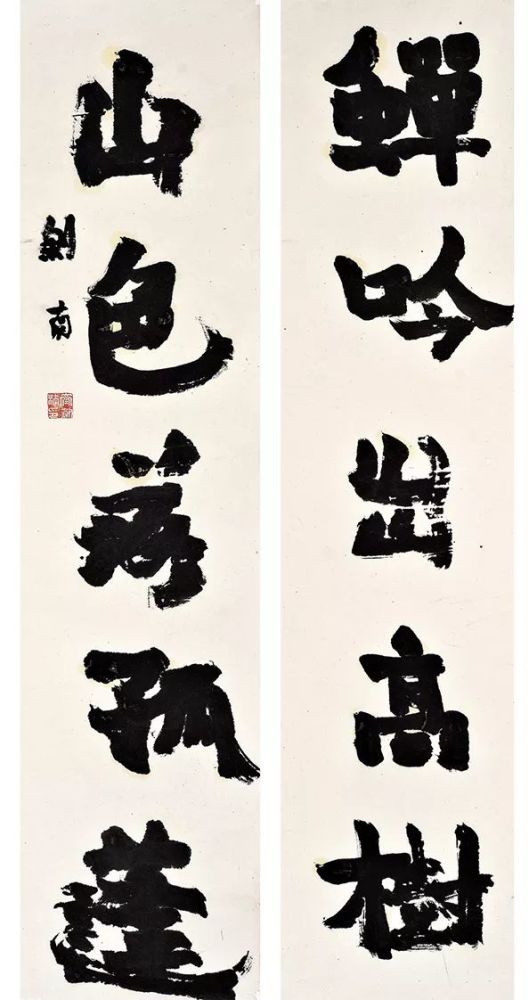 蟬吟出高樹
山色落孤蓬
劍南